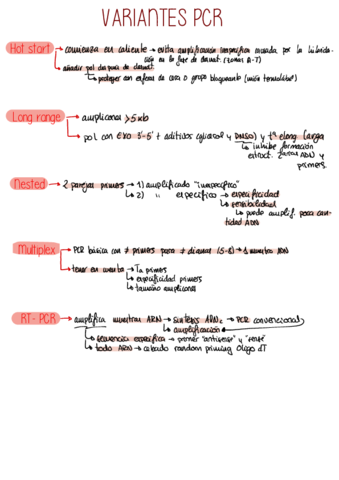 VARIANTES PCR
Hot start → comienza en caliente → evita amplificación inespecífica causada por la hibrida-
ción en la fase de desnat. (zonas A-T)
→ añadir pol después de desnat.
↳ proteger con esferas de cera o grupo bloqueante (unión termolábil)
Long range → amplicones >5 kb
→ pol con exo 3'-5' + aditivos (glicerol y DMSO) y tº elong larga
↳ inhibe formación
estruct. 2arias ADN y
primers.
Nested → 2 parejas primers → 1) amplificado "inespecífico"
→ 2) " específico → especificidad
↳ sensibilidad
↳ puedo amplif. poca can-
tidad ADN
Multiplex → PCR básica con ≠ primers para ≠ dianas (5-8) → 1 muestra ADN
→ tener en cuenta → Ta primers
↳ especificidad primers
↳ tamaño amplicones
RT-PCR → amplifica muestras ARN → síntesis ADNc → PCR convencional
↳ amplificación
↳ secuencia específica → primer "antisense" y "sense"
↳ todo ARN → cebado random priming Oligo dT